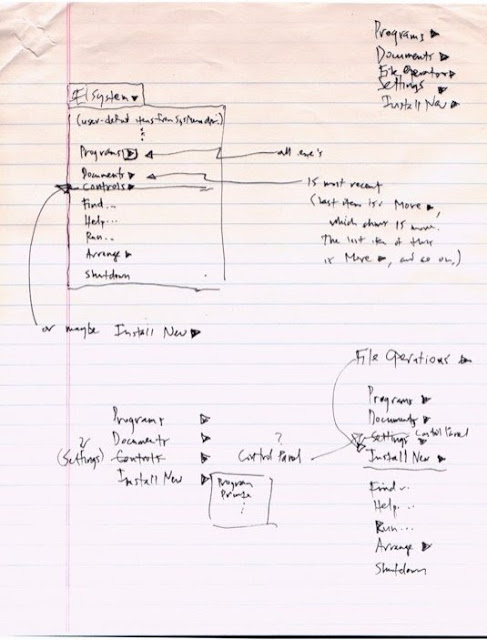 Programs ▶
Documents ▶
File Operators ▶
Settings ▶
Install New ▶
System ▼
(user-defined items from system dir)
⋮
Programs ▶
all exe's
Documents ▶
Controls ▶
15 most recent
Find...
Help...
Run...
Arrange ▶
Shutdown
(last item is More ▶,
which shows 15 more.
The last item of this
is More ▶, and so on.)
or maybe Install New ▶
File Operations ▶
Programs ▶
Documents ▶
Settings Control Panel ▶
Install New ▶
Find...
Help...
Run...
Arrange ▶
Shutdown
Programs ▶
Documents ▶
? (Settings) Controls ▶
Install New ▶
Program
Printer
⋮
?
Control Panel